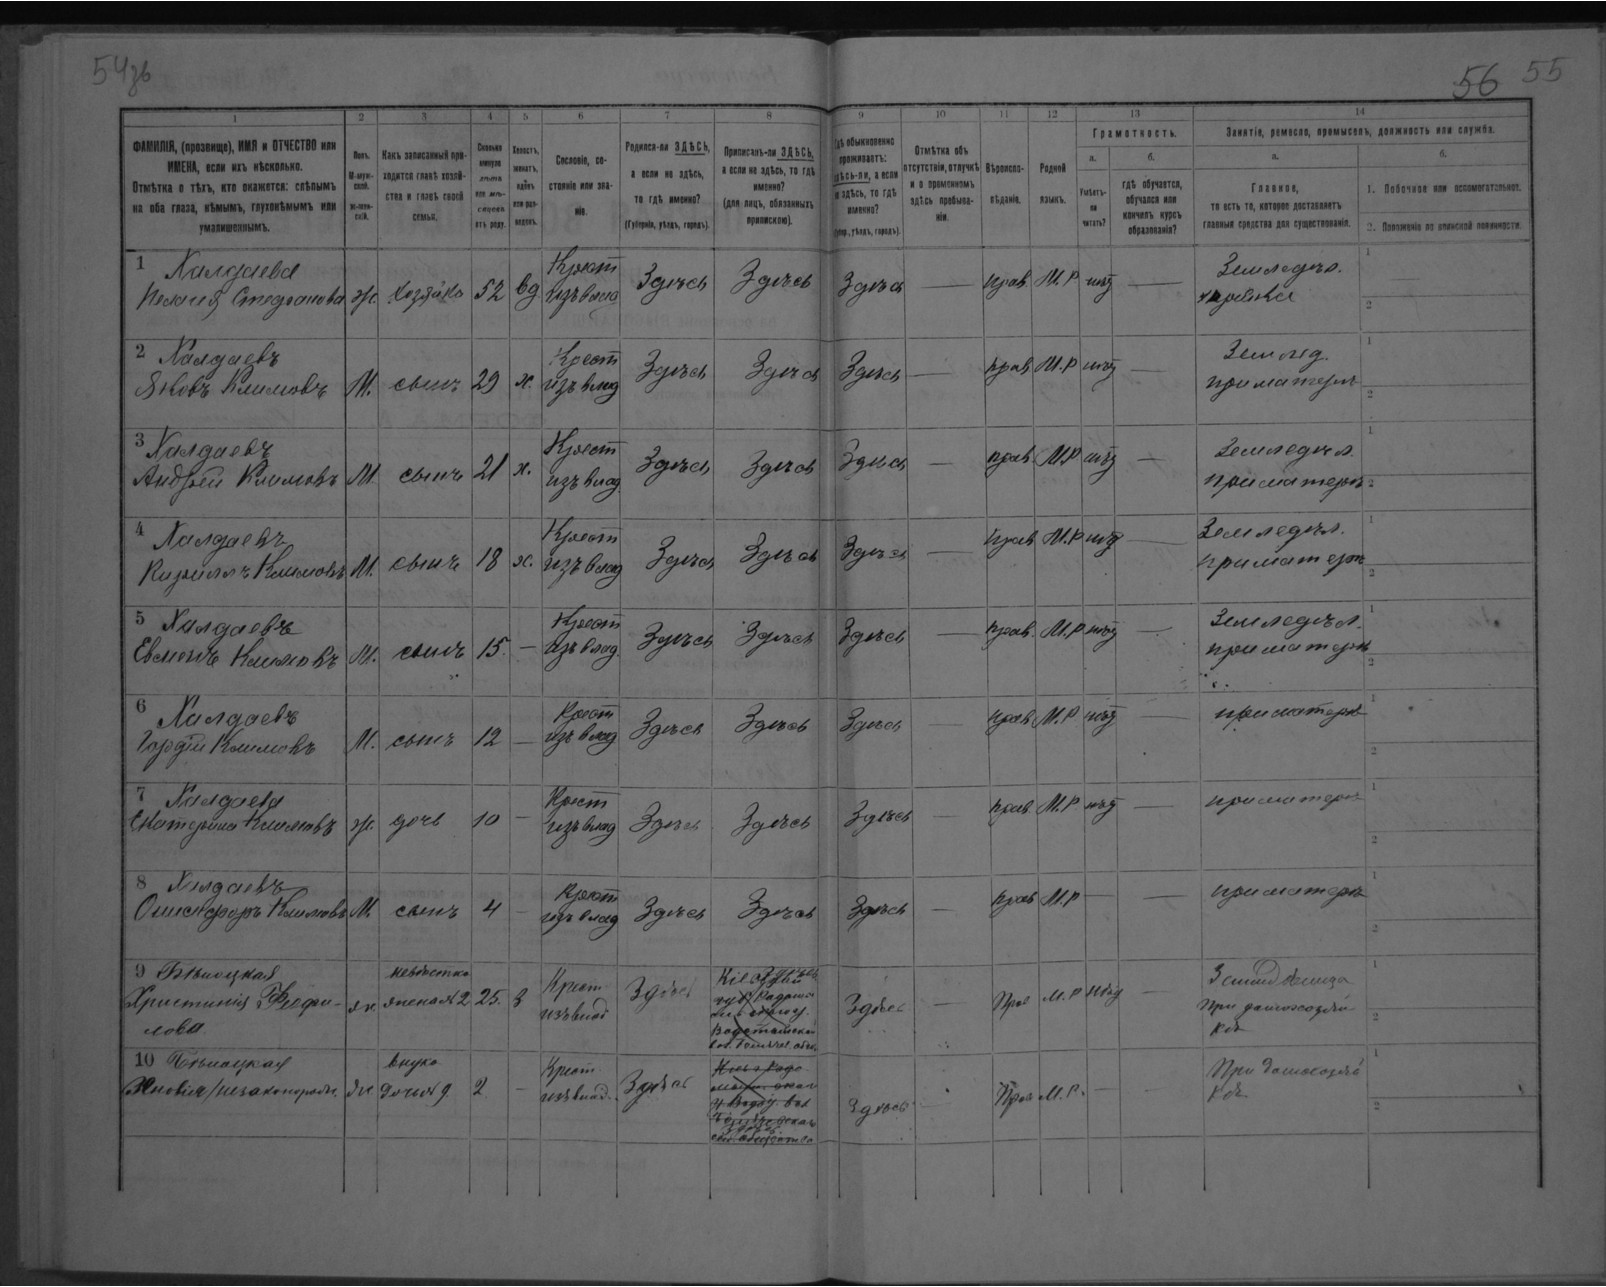 54 зв
56 55
1 2 3 4 5 6 7 8 9 10 11 12 13 14
ФАМИЛІЯ, (прозвище), ИМЯ и ОТЧЕСТВО или
ИМЕНА, если ихъ нѣсколько.
Отмѣтка о тѣхъ, кто окажется: слѣпымъ
на оба глаза, нѣмымъ, глухонѣмымъ или
умалишеннымъ.
Полъ.
М-муж-
ской.
Ж-жен-
скій.
Какъ записанный при-
ходится главѣ хозяй-
ства и главѣ своей
семьи.
Сколько
минуло
лѣтъ
или мѣ-
сяцевъ
отъ роду.
Холостъ,
женатъ,
вдовъ
или раз-
веденъ.
Сословіе, со-
стояніе или зва-
ніе.
Родился-ли ЗДѢСЬ,
а если не здѣсь,
то гдѣ именно?
(Губернія, уѣздъ, городъ).
Приписанъ-ли ЗДѢСЬ,
а если не здѣсь, то гдѣ
именно?
(для лицъ, обязанныхъ
припискою).
Гдѣ обыкновенно
проживаетъ:
здѣсь-ли, а если
не здѣсь, то гдѣ
именно?
(Губер., уѣздъ, городъ).
Отмѣтка объ
отсутствіи, отлучкѣ
и о временномъ
здѣсь пребыва-
ніи.
Вѣроиспо-
вѣданіе.
Родной
языкъ.
Грамотность.
а.
Умѣетъ-
ли
читать?
б.
гдѣ обучается,
обучался или
кончилъ курсъ
образованія?
Занятіе, ремесло, промыселъ, должность или служба.
а.
Главное,
то есть то, которое доставляетъ
главныя средства для существованія.
б.
1. Побочное или вспомогательное.
2. Положеніе по воинской повинности.
1 Халдаева Крест Земледѣл.
Пелагея Стефанова ж. хозяйка 52 вд изъ влад Здѣсь Здѣсь Здѣсь — прав М.Р нѣт — хозяйка
1 —
2
2 Халдаевъ Крест Землед.
Яковъ Климовъ М. сынъ 29 х. изъ влад Здѣсь Здѣсь Здѣсь — прав М.Р нѣт — при матери
1
2
3 Халдаевъ Крест Земледѣл.
Андрей Климовъ М сынъ 21 х. изъ влад. Здѣсь Здѣсь Здѣсь — прав. М.Р нѣт — при матери
1
2
4 Халдаевъ Крест Земледѣл.
Кириллъ Климовъ М. сынъ 18 х. изъ влад Здѣсь Здѣсь Здѣсь — прав М.Р нѣт — при матери
1
2
5 Халдаевъ Крест Земледѣл.
Евменъ Климовъ М. сынъ 15. — изъ влад. Здѣсь Здѣсь Здѣсь — прав. М.Р нѣт — при матери
1
2
6 Халдаевъ Крест
Гордѣй Климовъ М. сынъ 12 — изъ влад Здѣсь Здѣсь Здѣсь — прав М.Р нѣт — при матери
1
2
7 Халдаева Крест
Екатерина Климовъ ж. дочь 10 — изъ влад Здѣсь Здѣсь Здѣсь — прав. М.Р нѣт — при матери
1
2
8 Халдаевъ Крест
Онисифоръ Климовъ М. сынъ 4 — изъ влад Здѣсь Здѣсь Здѣсь — прав М.Р — — при матери
1
2
9 невѣстка Здѣсь
Христинія Феофи-
лова ж. жена №2 25. З Крест
изъ влад Здѣсь Здѣсь Прав М.Р нѣт
При домохозяй
кѣ
1
2
10 внука
незаконорожд. ж. дочь №9. 2 — Крест
изъ влад. Здѣсь Здѣсь Здѣсь — Прав М.Р. — При домохозяй
кѣ
1
2